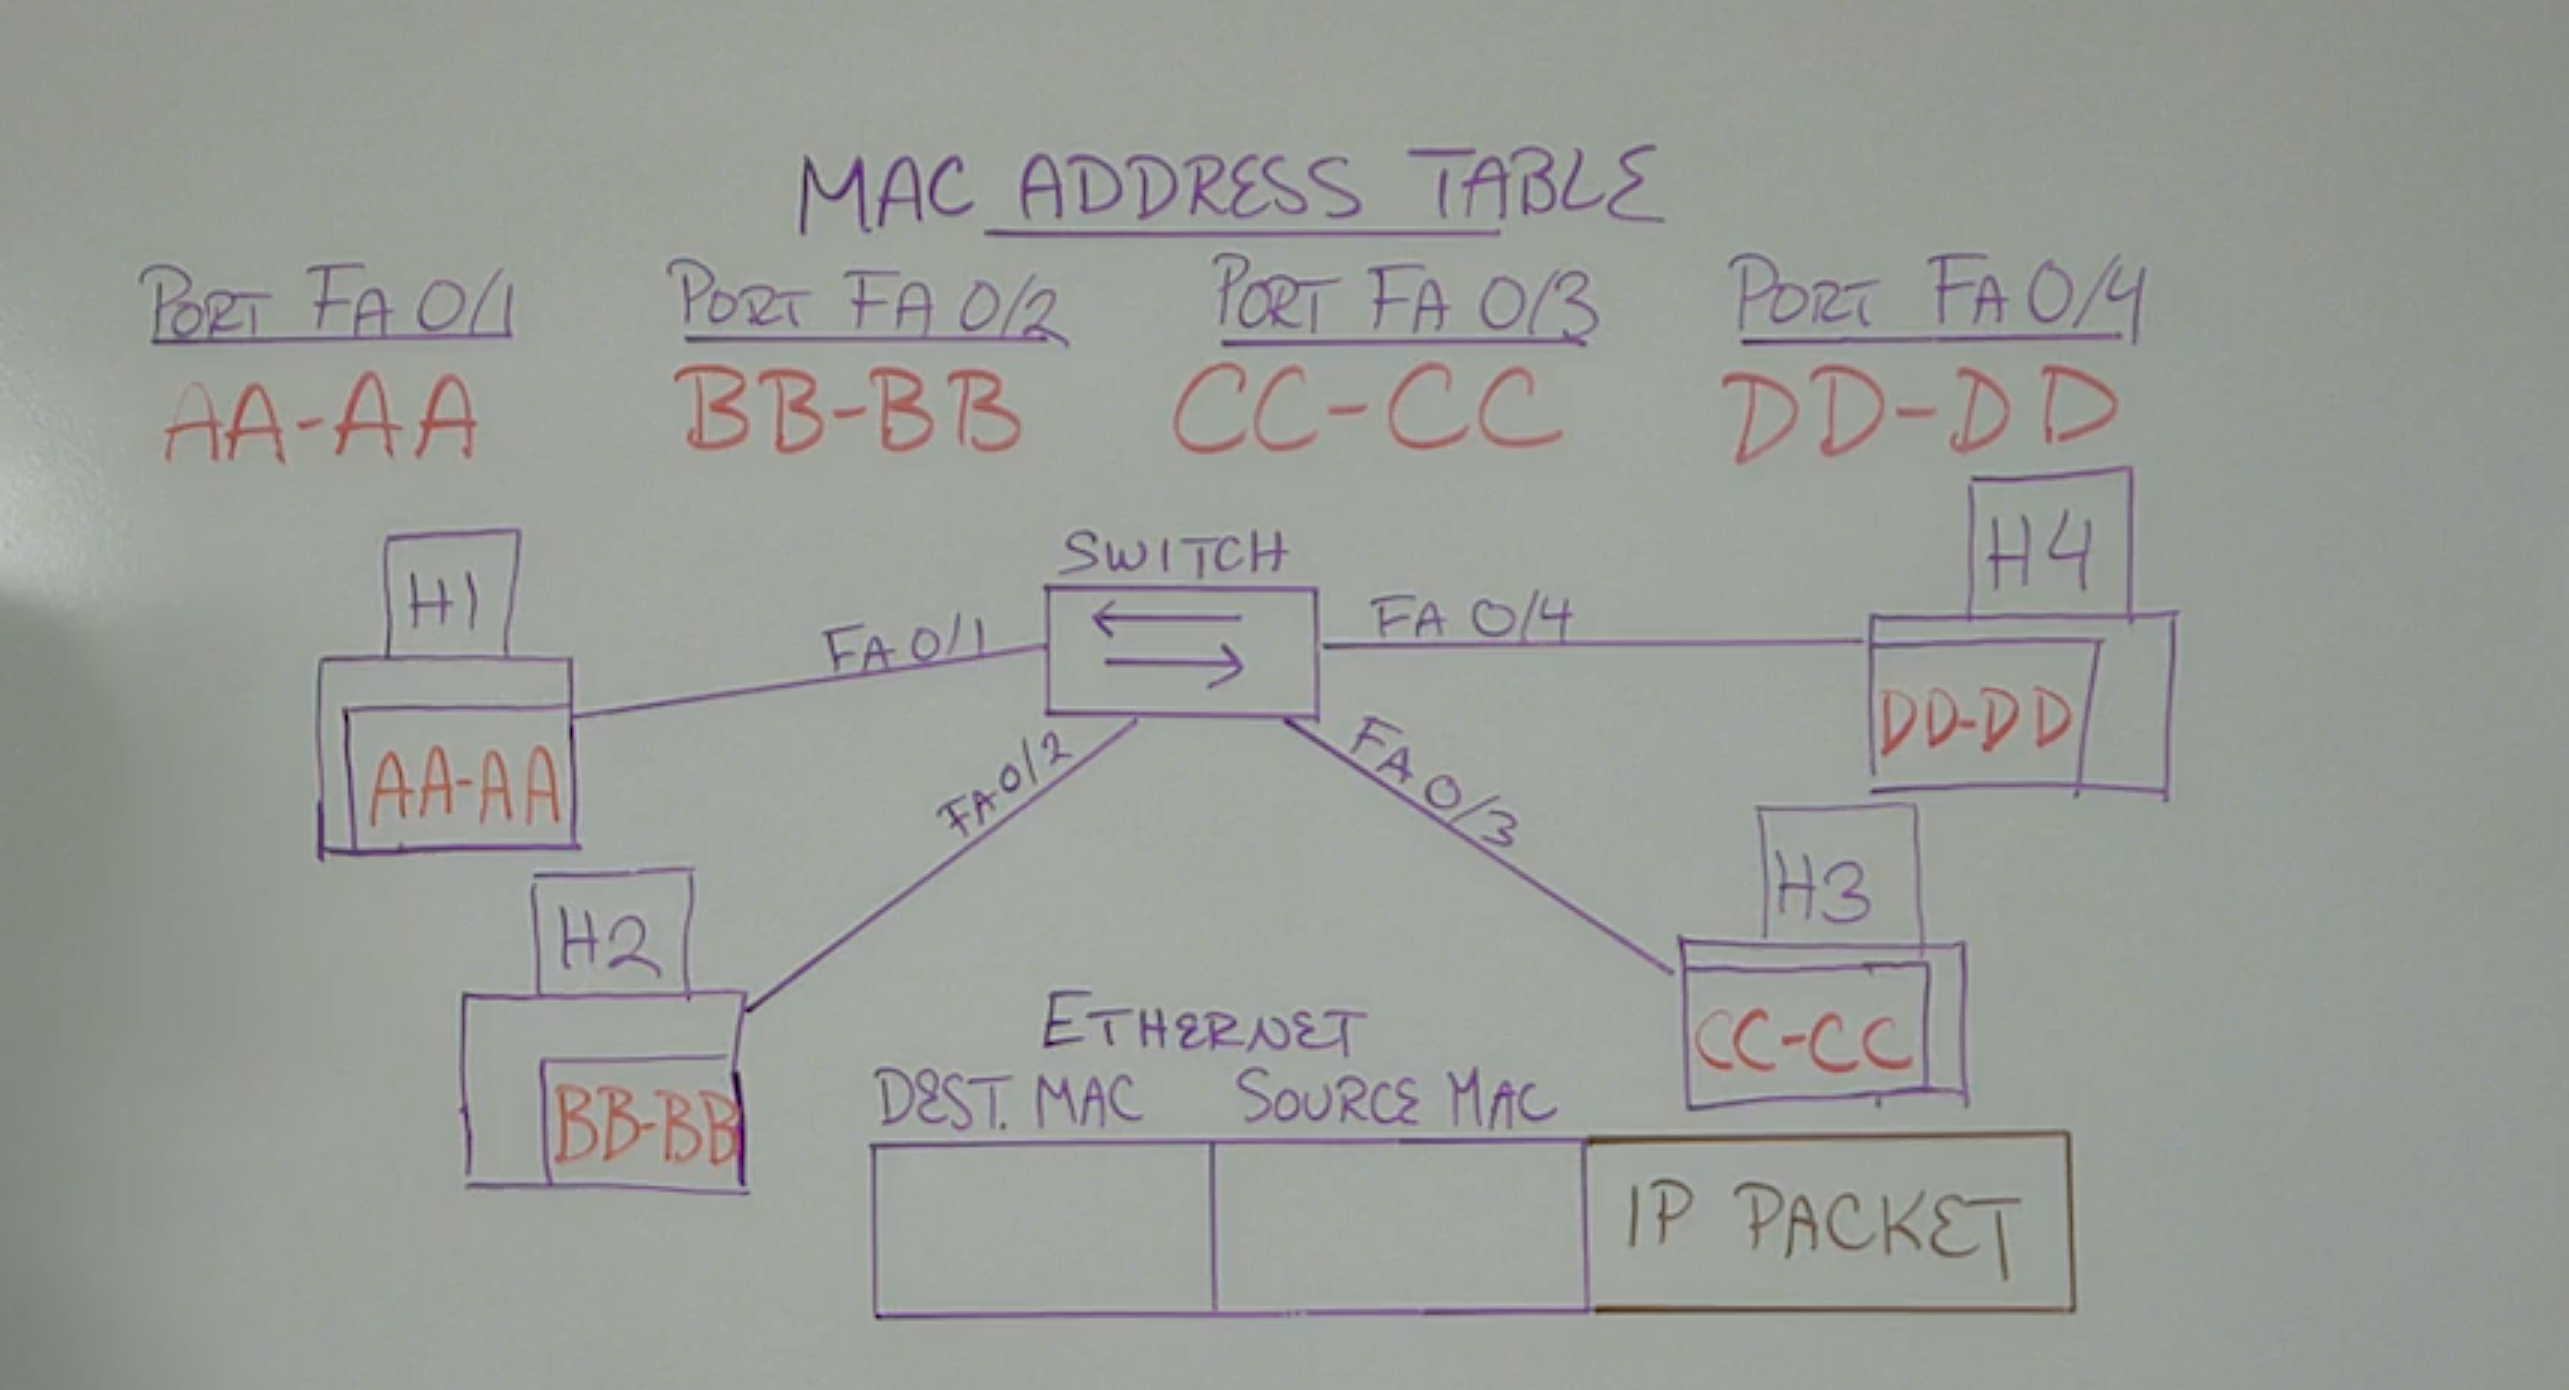 MAC ADDRESS TABLE
PORT FA 0/1 PORT FA 0/2 PORT FA 0/3 PORT FA 0/4
AA-AA BB-BB CC-CC DD-DD
H1
SWITCH
H4
FA 0/1
FA 0/4
AA-AA
FA 0/2
FA 0/3
DD-DD
H2
H3
BB-BB
CC-CC
ETHERNET
DEST. MAC SOURCE MAC
IP PACKET